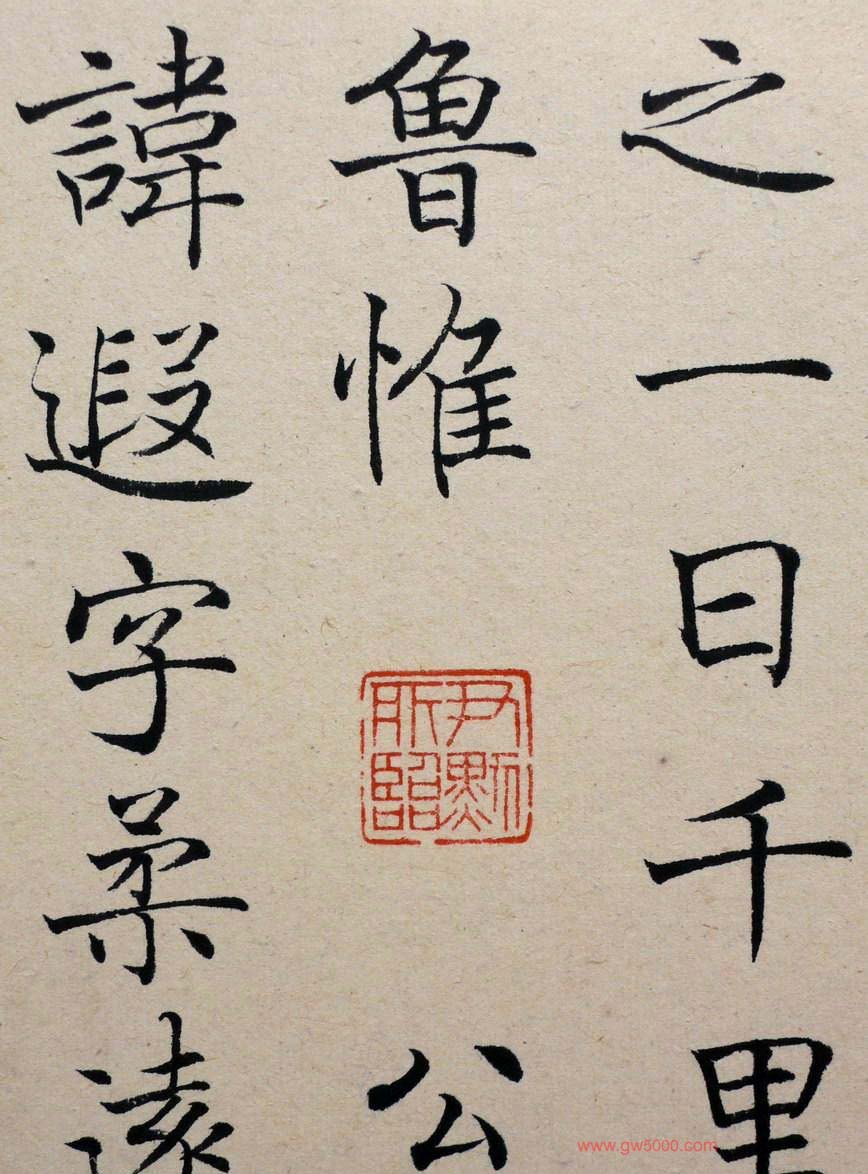 之一日千里
魯惟
尹默所臨
公
諱遐字柔遠
www.gw5000.com